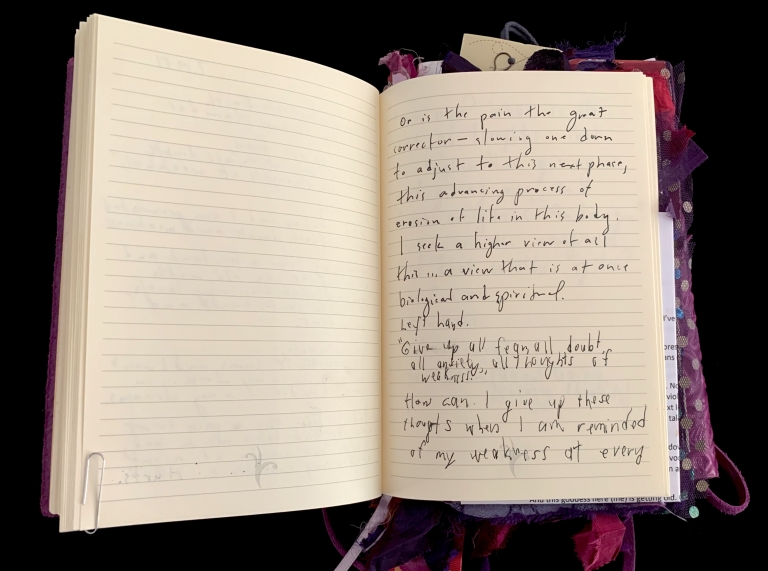 Or is the pain the great
corrector – slowing one down
to adjust to this next phase,
this advancing process of
erosion of life in this body.
I seek a higher view of all
this... a view that is at once
biological and spiritual.
Left hand.
"Give up all fear, all doubt,
all anxiety, all thoughts of
weakness."
How can I give up these
thoughts when I am reminded
of my weakness at every
And this goddess here (me) is getting old.